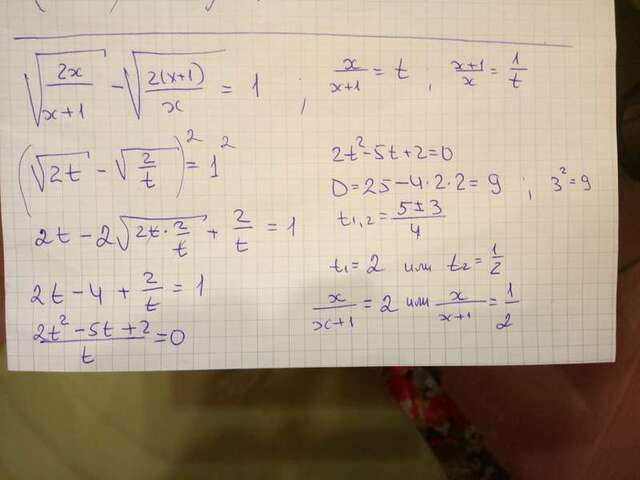 √(2x/(x+1)) - √(2(x+1)/x) = 1 ; x/(x+1) = t, (x+1)/x = 1/t
(√(2t) - √(2/t))² = 1²
2t - 2√(2t · 2/t) + 2/t = 1
2t - 4 + 2/t = 1
(2t² - 5t + 2)/t = 0
2t² - 5t + 2 = 0
D = 25 - 4·2·2 = 9 ; 3² = 9
t1,2 = (5 ± 3)/4
t1 = 2 или t2 = 1/2
x/(x+1) = 2 или x/(x+1) = 1/2